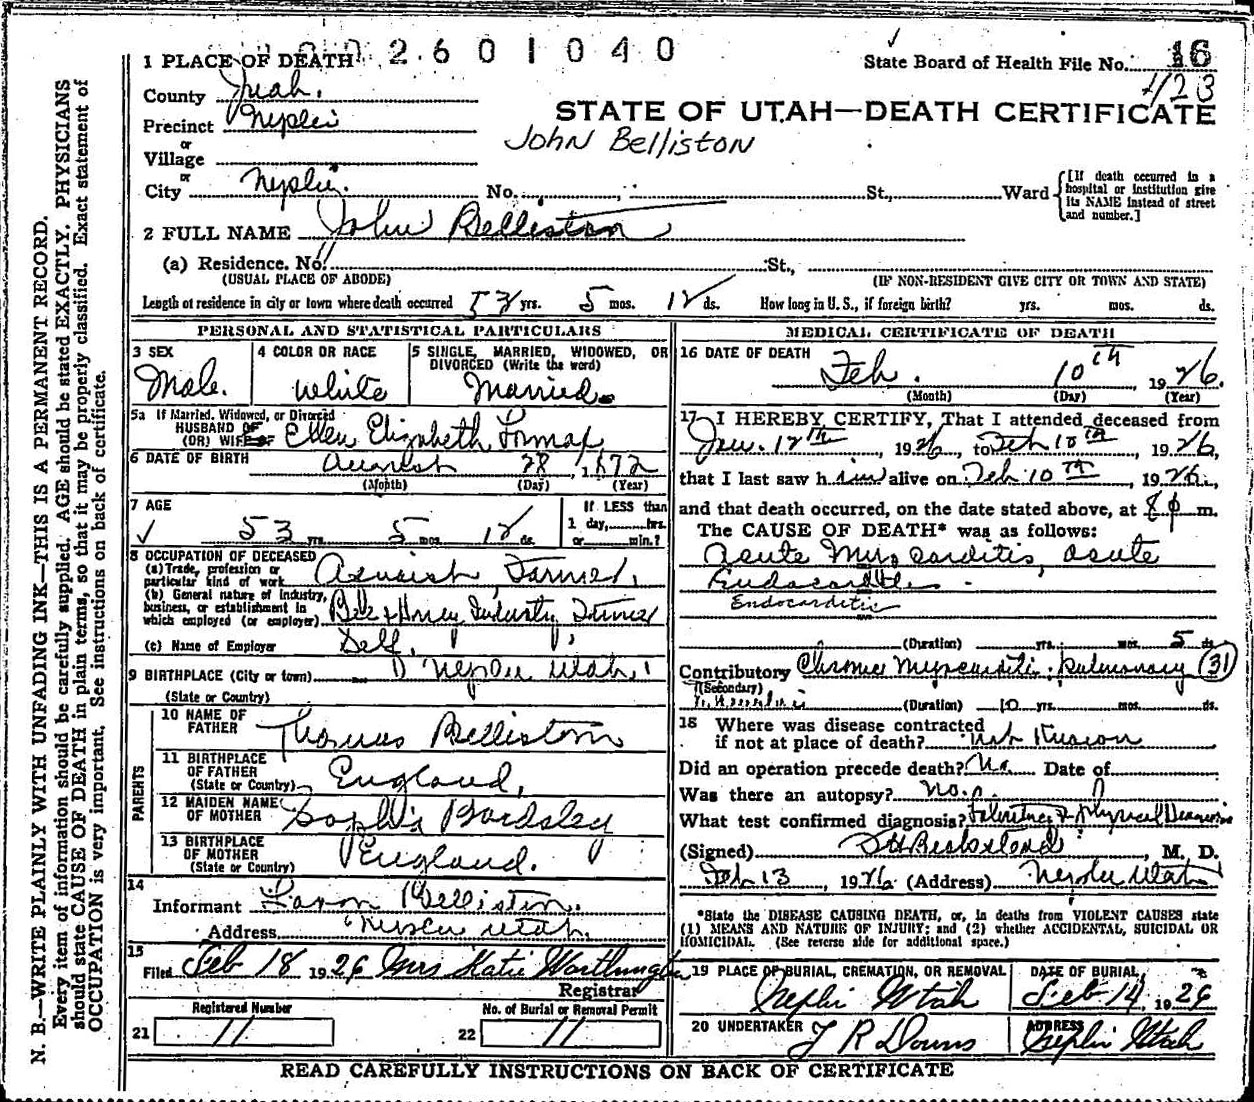 1 PLACE OF DEATH 2601040
State Board of Health File No. 16
County Juab.
423
STATE OF UTAH—DEATH CERTIFICATE
Precinct Nephi
John Belliston
or
Village
or
City Nephi. No. St., Ward
[If death occurred in a hospital or institution give its NAME instead of street and number.]
2 FULL NAME John Belliston
(a) Residence. No. St.,
(USUAL PLACE OF ABODE) (IF NON-RESIDENT GIVE CITY OR TOWN AND STATE)
Length of residence in city or town where death occurred 53 yrs. 5 mos. 12 ds. How long in U. S., if foreign birth? yrs. mos. ds.
PERSONAL AND STATISTICAL PARTICULARS
3 SEX Male.
4 COLOR OR RACE White
5 SINGLE, MARRIED, WIDOWED, OR DIVORCED (Write the word) Married.
5a If Married, Widowed, or Divorced
HUSBAND OF
(OR) WIFE OF Ellen Elizabeth
6 DATE OF BIRTH August 28, 1872
(Month) (Day) (Year)
7 AGE 53 yrs. 5 mos. 12 ds.
If LESS than 1 day, hrs. or min.?
8 OCCUPATION OF DECEASED
(a) Trade, profession or particular kind of work Farmer.
(b) General nature of Industry, business, or establishment in which employed (or employer) Bee & Honey Industry, Farmer
(c) Name of Employer Self.
9 BIRTHPLACE (City or town) Nephi Utah.
(State or Country)
PARENTS
10 NAME OF FATHER Thomas Belliston
11 BIRTHPLACE OF FATHER (State or Country) England.
12 MAIDEN NAME OF MOTHER Sophia Bardsley
13 BIRTHPLACE OF MOTHER (State or Country) England.
14
Informant Belliston.
Address Nephi Utah.
15
Filed Feb 18 1926 Mrs Katie Worthington
Registrar
Registered Number
21 11
No. of Burial or Removal Permit
22 11
MEDICAL CERTIFICATE OF DEATH
16 DATE OF DEATH
Feb. 10th, 1926.
(Month) (Day) (Year)
17 I HEREBY CERTIFY, That I attended deceased from
Jan. 12th, 1926, to Feb 10th, 1926,
that I last saw him alive on Feb 10th, 1926,
and that death occurred, on the date stated above, at 8 p m.
The CAUSE OF DEATH* was as follows:
Acute Myocarditis, acute
Endocarditis.
Endocarditis
(Duration) yrs. mos. 5 ds.
Contributory Chronic Myocarditis; pulmonary (31)
(Secondary)
(Duration) 10 yrs. mos. ds.
18 Where was disease contracted
if not at place of death? Not Known
Did an operation precede death? No. Date of
Was there an autopsy? No.
What test confirmed diagnosis? & physical
(Signed) , M. D.
Feb 13, 1926 (Address) Nephi Utah
*State the DISEASE CAUSING DEATH, or, in deaths from VIOLENT CAUSES state
(1) MEANS AND NATURE OF INJURY; and (2) whether ACCIDENTAL, SUICIDAL OR
HOMICIDAL. (See reverse side for additional space.)
19 PLACE OF BURIAL, CREMATION, OR REMOVAL
Nephi Utah
DATE OF BURIAL,
Feb 14, 1926
20 UNDERTAKER J R Downs
ADDRESS
Nephi Utah
READ CAREFULLY INSTRUCTIONS ON BACK OF CERTIFICATE
N. B.—WRITE PLAINLY WITH UNFADING INK—THIS IS A PERMANENT RECORD.
Every item of information should be carefully supplied. AGE should be stated EXACTLY. PHYSICIANS
should state CAUSE OF DEATH in plain terms, so that it may be properly classified. Exact statement of
OCCUPATION is very important. See instructions on back of certificate.